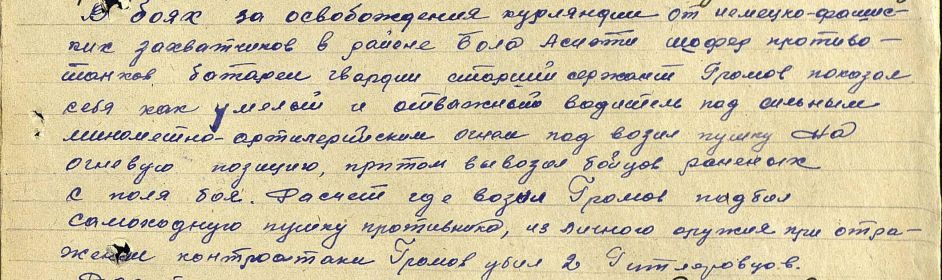 В боях за освобождения курляндии от немецко-фашис-
ких захватчиков в районе Бола Асиэти шофер противо-
танков батареи гвардии старший сержант Громов показал
себя как умелый и отважный водитель под сильным
минометно-артилерийским огнем под возил пушку на
огневую позицию, притом вывозил бойцов раненых
с поля боя. Расчет где возил Громов подбил
самоходную пушку противника, из личного оружия при отра-
жении контратаки Громов убил 2 Гитлеровцов.